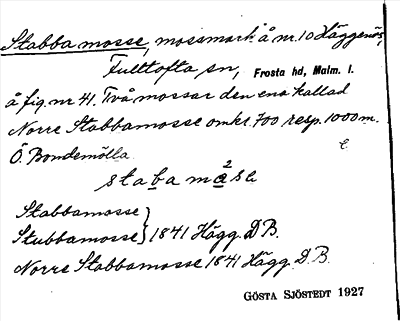 Stabba mosse, mossmark å nr. 10 Häggenäs,
Fulltofta sn, Frosta hd, Malm. l.
å fig. nr 41. Två mossar den ena kallad
Norre Stabbamosse omkr. 700 resp. 1000 m.
Ö. Bondemölla.
staba måse
Stabbamosse
Stubbamosse } 1841 Hägg. D B.
Norre Stabbamosse 1841 Hägg. D. B.
GÖSTA SJÖSTEDT 1927